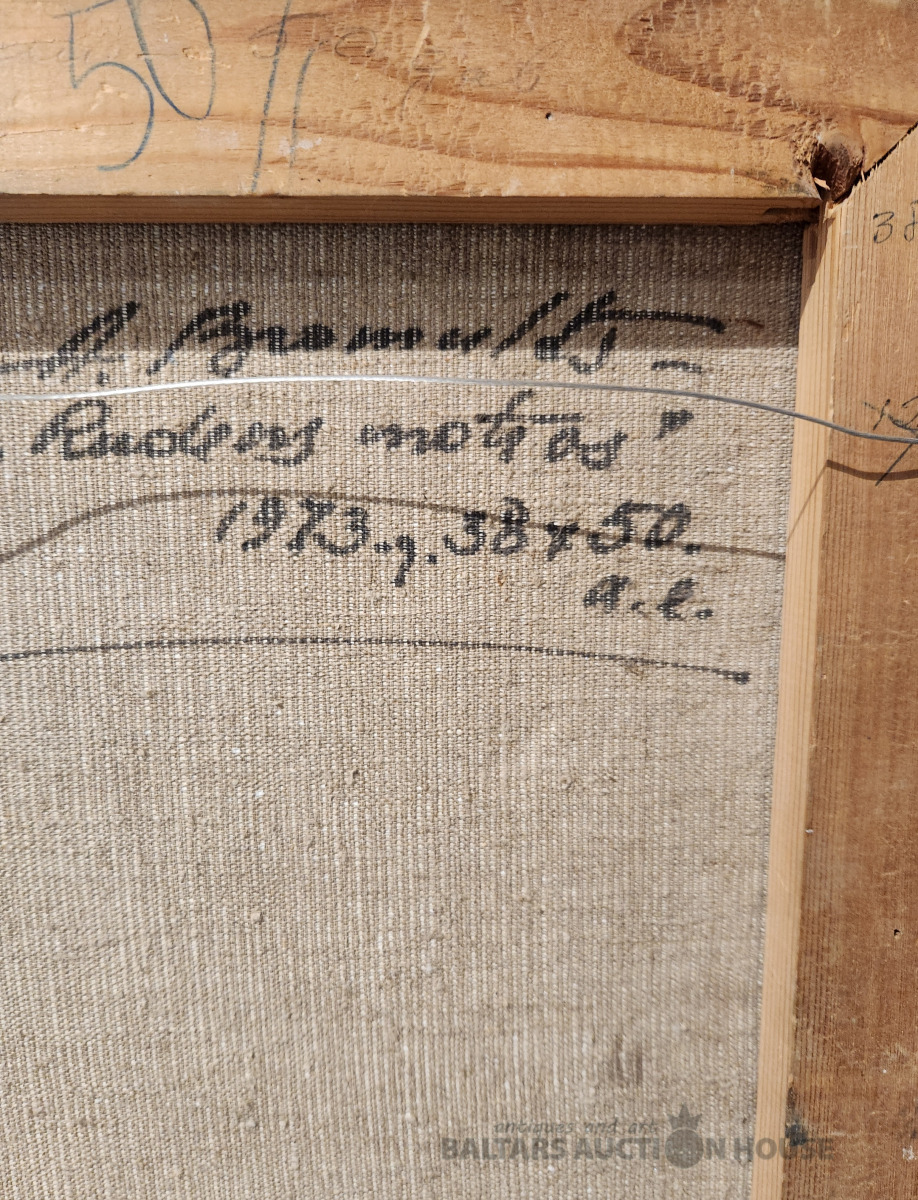 50
38
A. Bromults –
„Rudens motīvs"
x 2
1973.g. 38x50.
a.e.
antiques and art
BALTARS AUCTION HOUSE